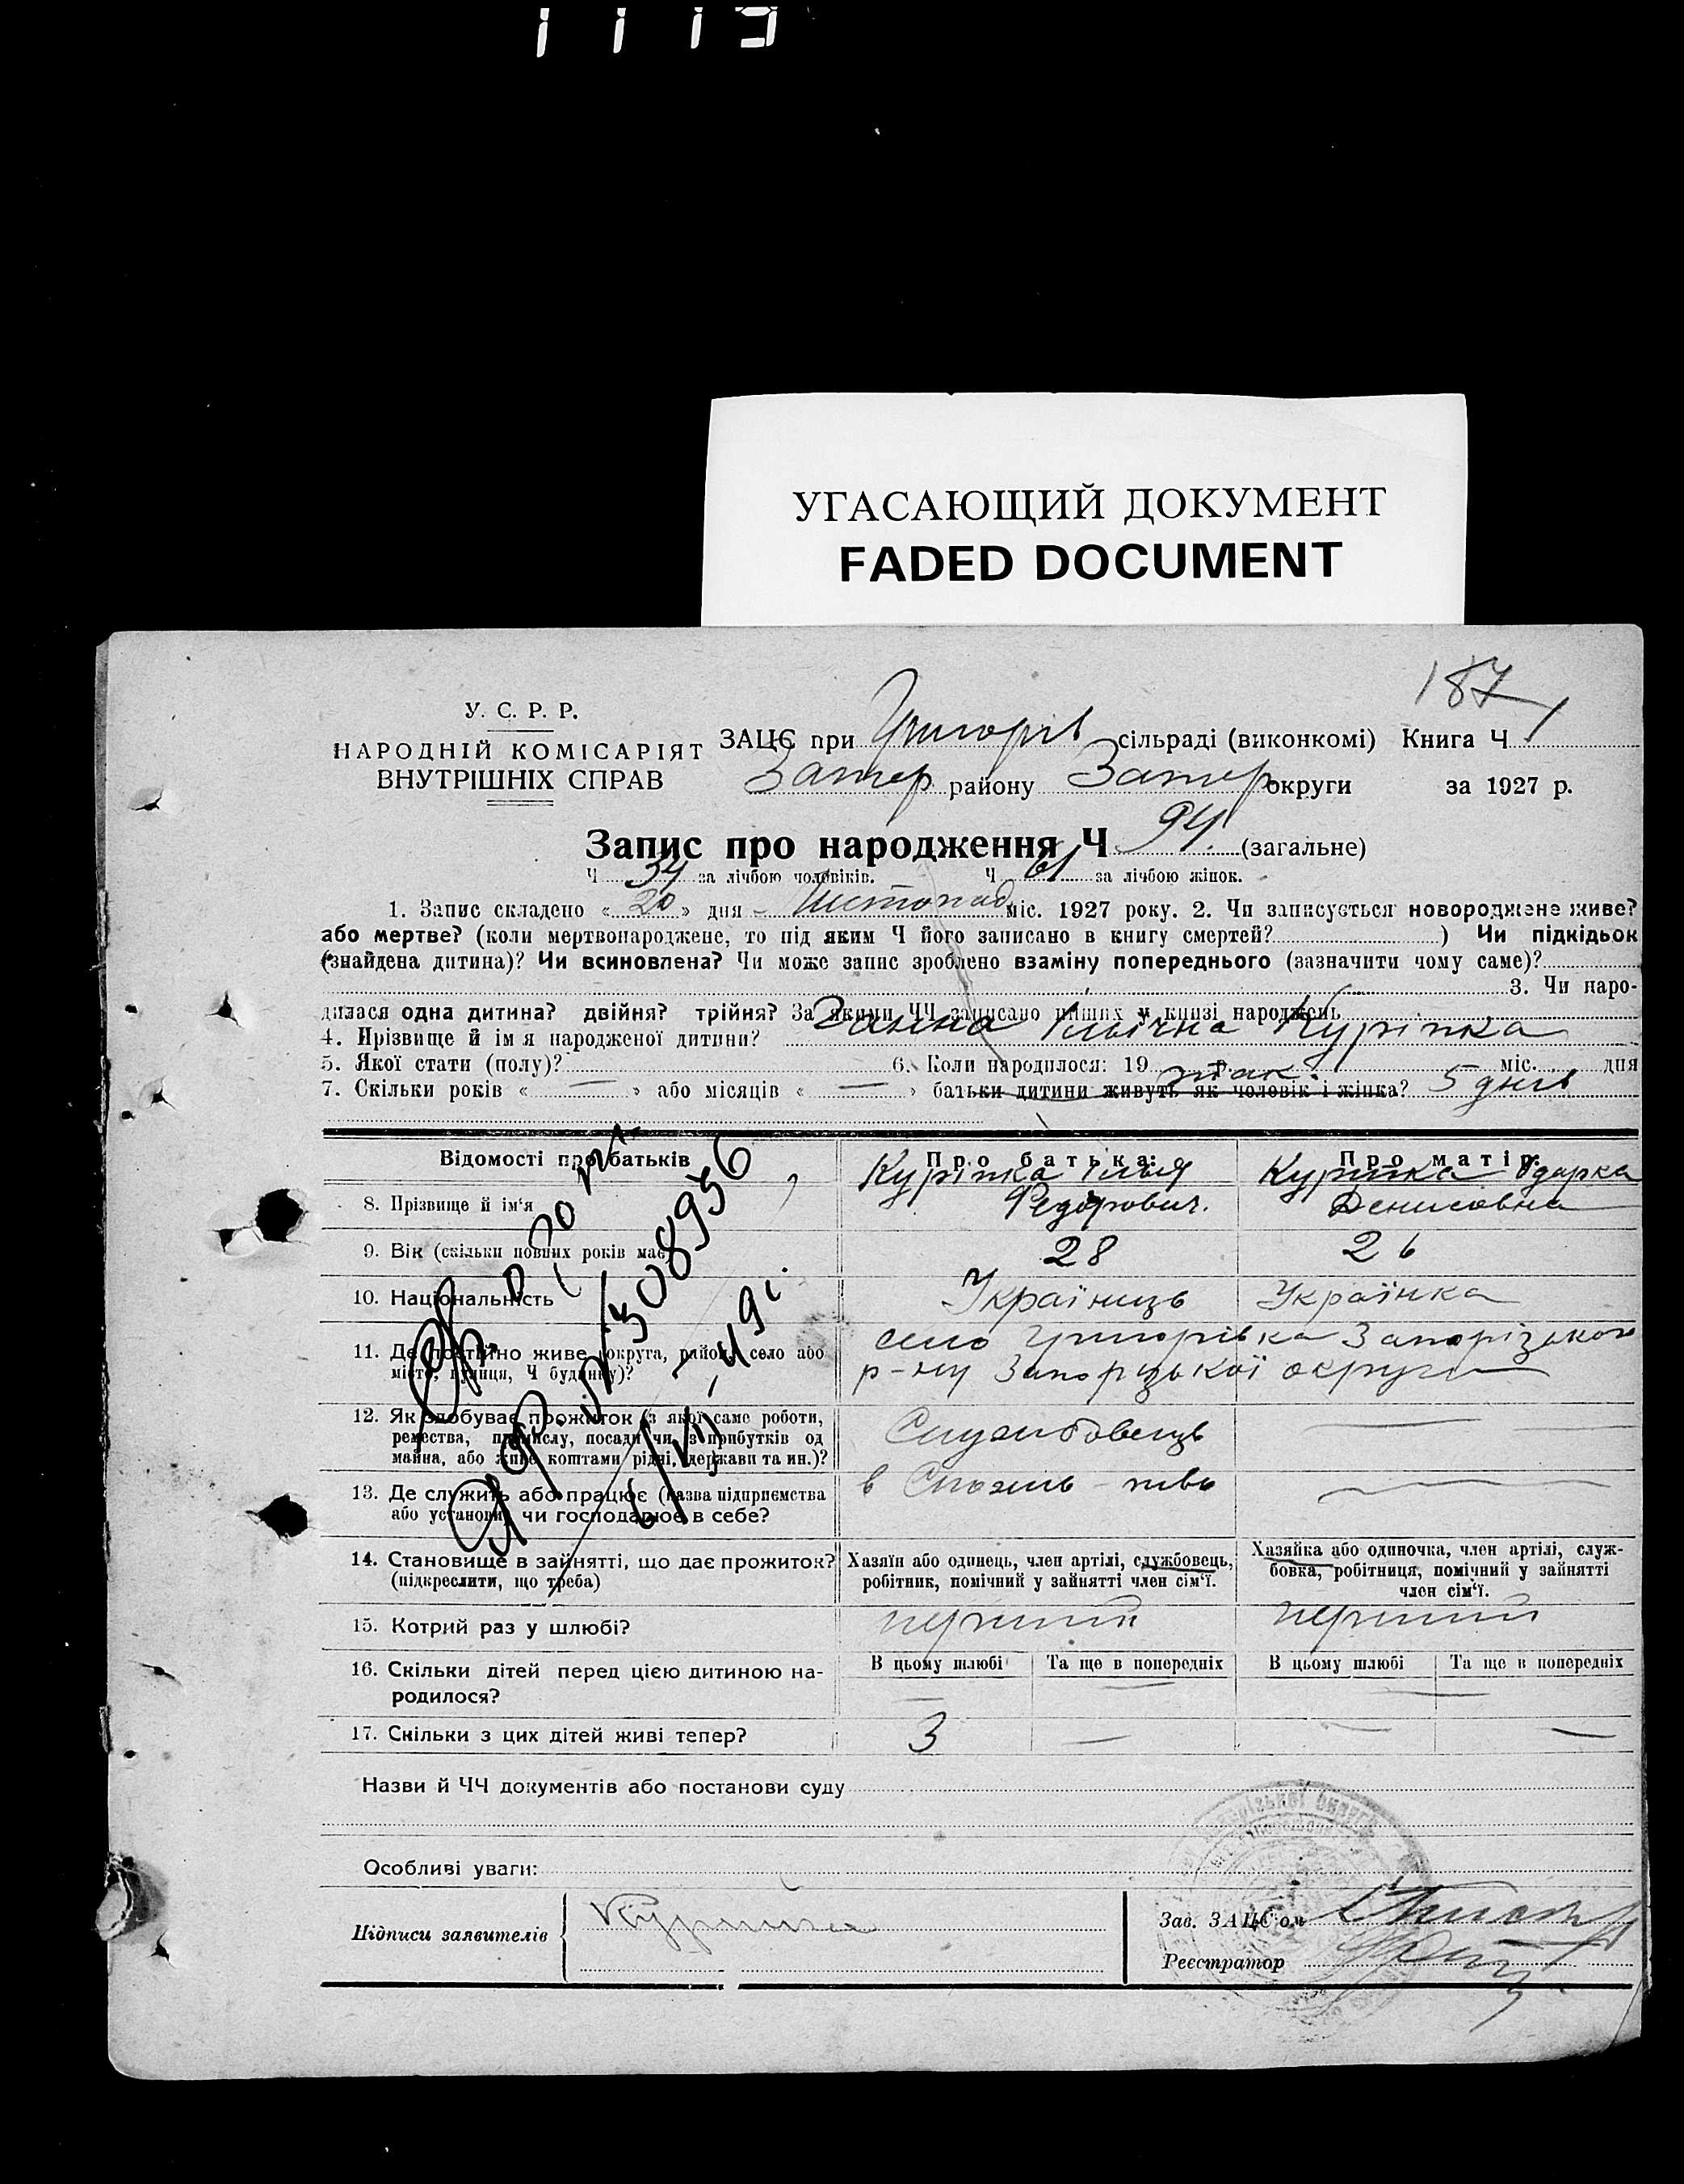 1113
УГАСАЮЩИЙ ДОКУМЕНТ
FADED DOCUMENT
187
У. С. Р. Р.
НАРОДНІЙ КОМІСАРІЯТ
ВНУТРІШНІХ СПРАВ
ЗАЦС при Григорів сільраді (виконкомі) Книга Ч 1
Запор району Запор округи за 1927 р.
Запис про народження Ч 94. (загальне)
Ч 34 за лічбою чоловіків. Ч 61 за лічбою жінок.
1. Запис складено « 20 » дня Листопад міс. 1927 року. 2. Чи записується новороджене живе?
або мертве? (коли мертвонароджене, то під яким Ч його записано в книгу смертей? ) Чи підкідьок
(знайдена дитина)? Чи всиновлена? Чи може запис зроблено взаміну попереднього (зазначити чому саме)?
3. Чи наро-
дилася одна дитина? двійня? трійня? За якими ЧЧ записано инших у книзі народжень
4. Прізвище й імя народженої дитини? Ганна Ільічна Куріпка
5. Якої стати (полу)? 6. Коли народилося: 19 р. міс. дня
7. Скільки років « — » або місяців « — » батьки дитини живуть як чоловік і жінка? так. 5 днів
Відомості про батьків Про батька: Про матір:
8. Прізвище й ім'я Куріпка Ілья Федорович. Куріпка Одарка Денисовна
9. Вік (скільки повних років має) 28 26
10. Національність Українець Українка
11. Де постійно живе (округа, район, село або місто, вулиця, Ч будинку)? село Григорівка Запорізького
р-ну Запорізької округи
12. Як здобуває прожиток (з якої саме роботи,
ремества, промислу, посади чи з прибутків од
майна, або живе коштами рідні, держави та ин.)? Службовець —
13. Де служить або працює (назва підприємства
або установи) чи господарює в себе? в
14. Становище в зайнятті, що дає прожиток?
(підкреслити, що треба)
Хазяїн або одинець, член артілі, службовець,
робітник, помічний у зайнятті член сім'ї.
Хазяйка або одиночка, член артілі, служ-
бовка, робітниця, помічний у зайнятті
член сім'ї.
15. Котрий раз у шлюбі? перший перший
16. Скільки дітей перед цією дитиною на-
родилося?
В цьому шлюбі Та ще в попередніх В цьому шлюбі Та ще в попередніх
17. Скільки з цих дітей живі тепер? 3 — — —
Назви й ЧЧ документів або постанови суду
Особливі уваги:
Підписи заявителів Куріпка
Зав. ЗАЦС'ом
Реєстратор